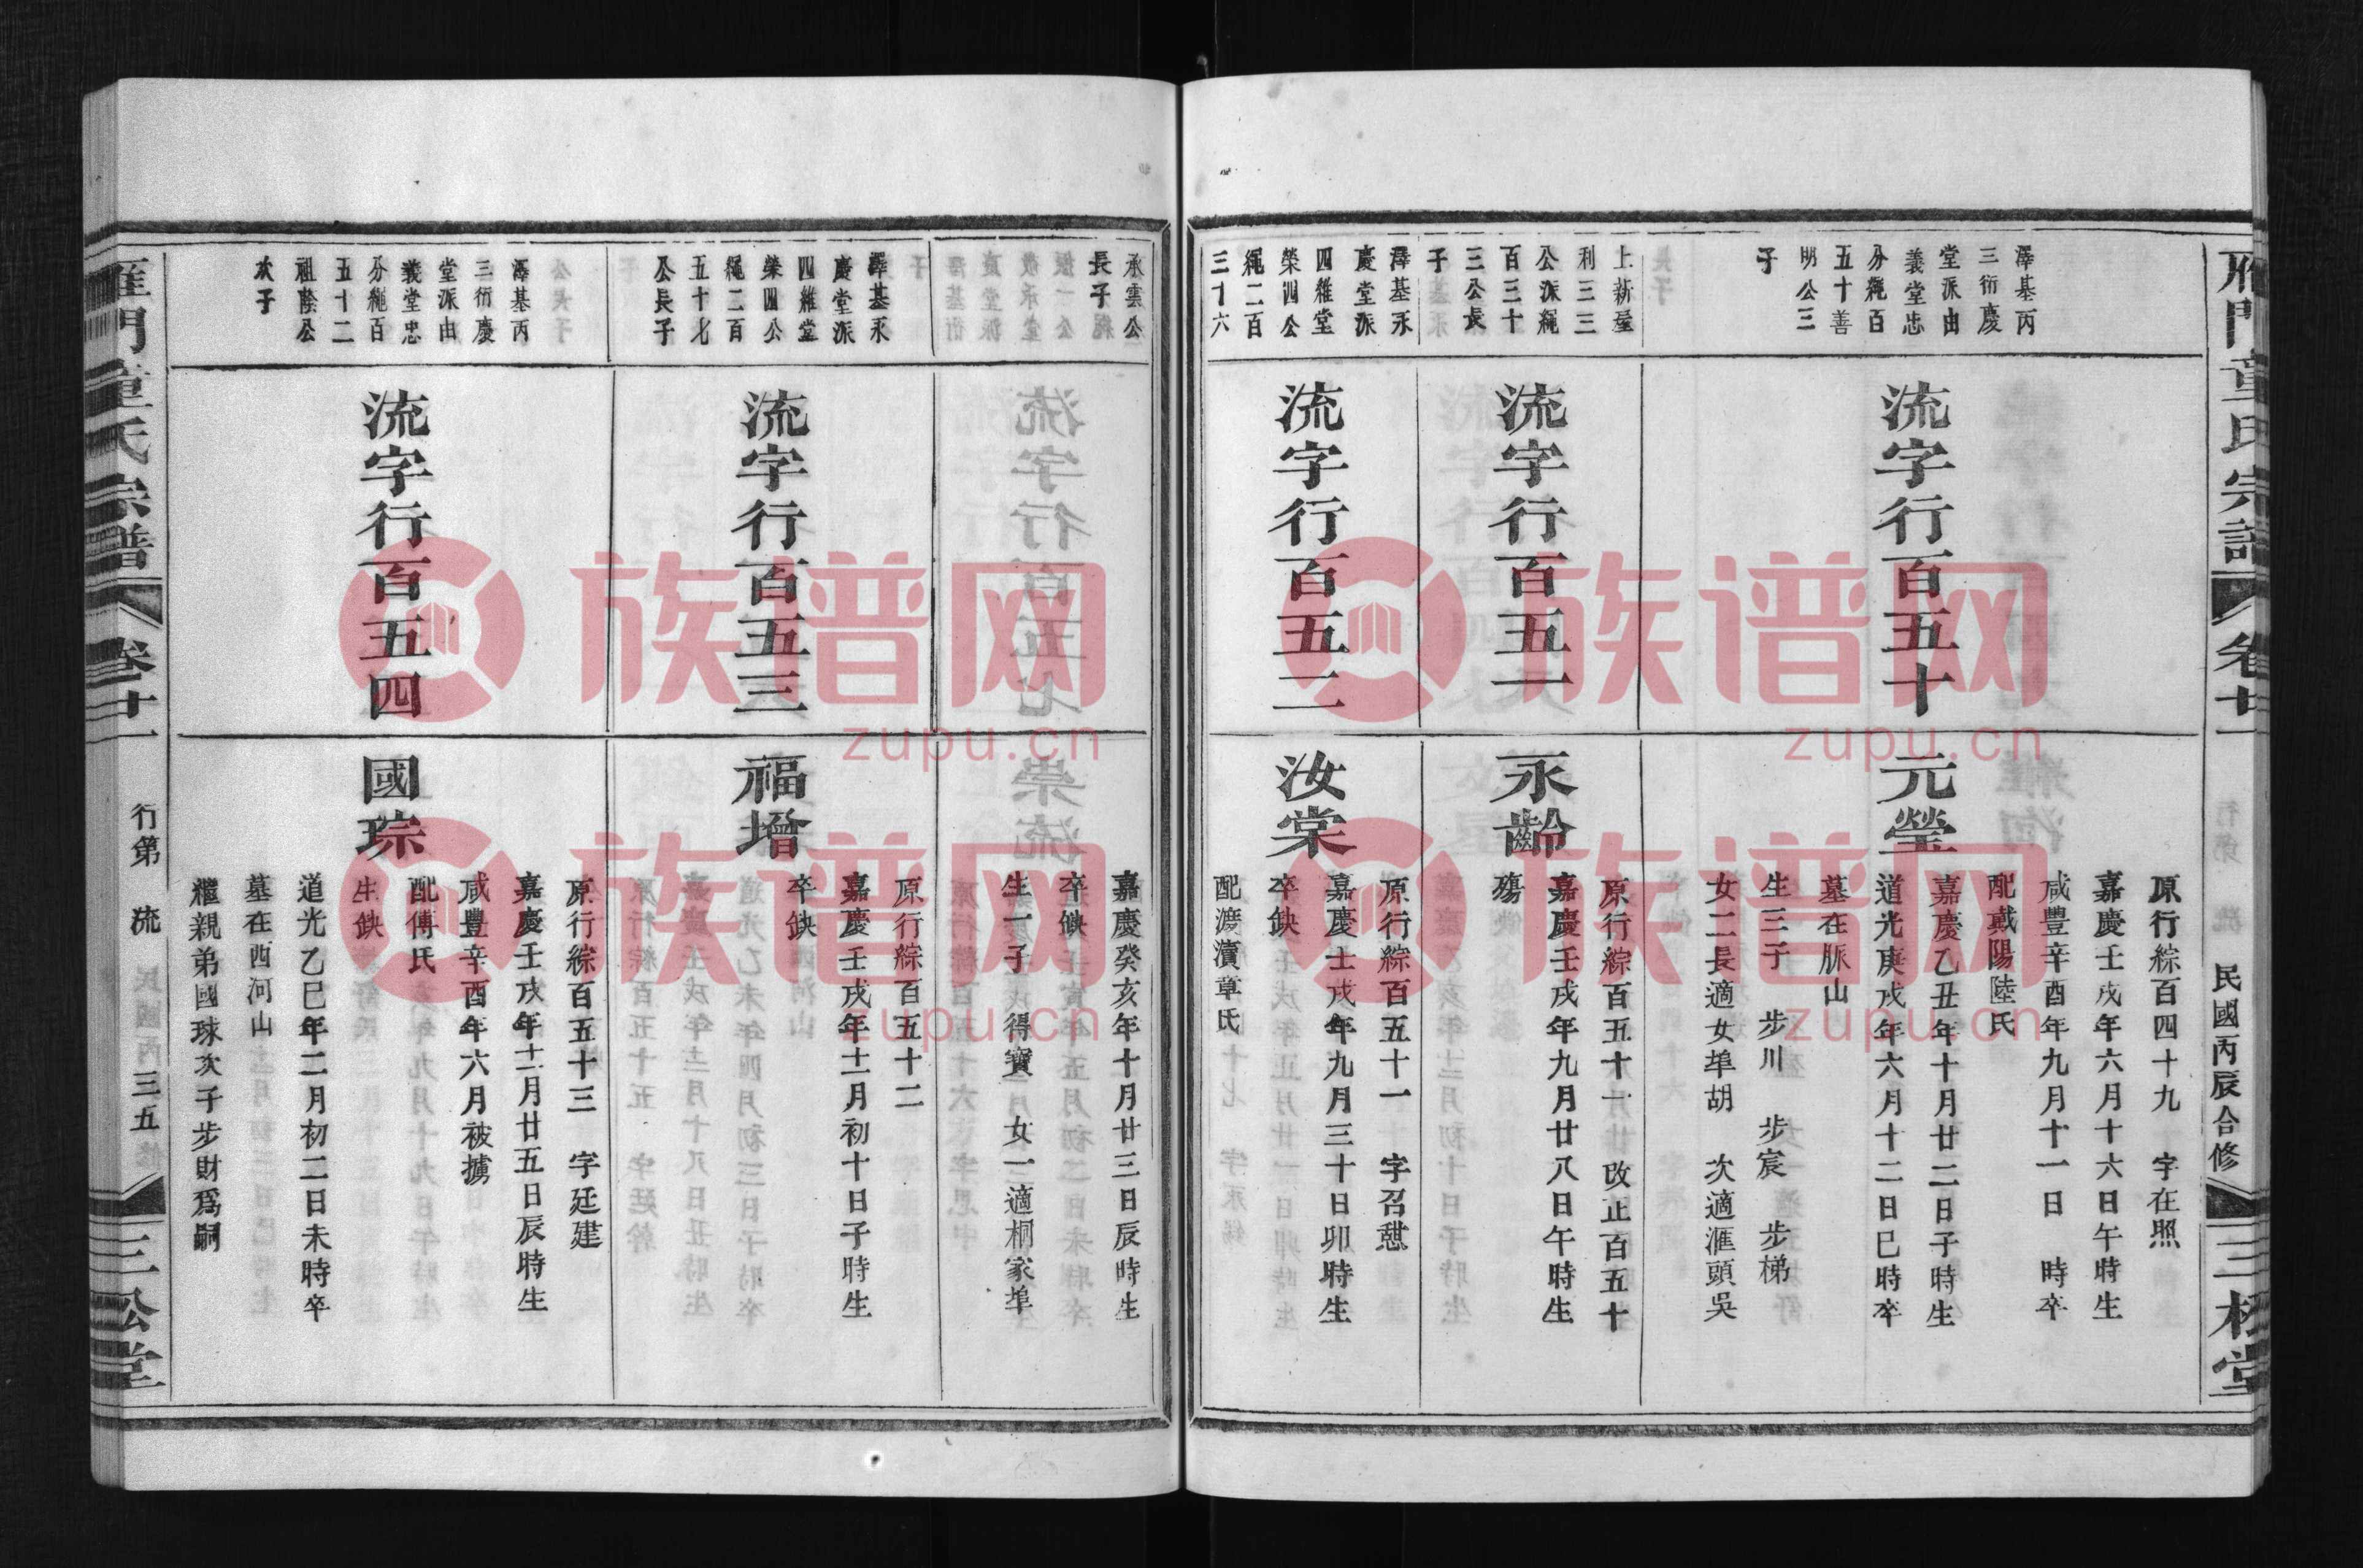 雁門童氏宗譜
卷廿一
民國丙辰合修
三松堂
澤基丙
三衍慶
堂派由
義堂忠
分繩百
五十善
明公三
子
流字行百五十
元瑩
原行綜百四十九 字在照
嘉慶壬戌年六月十六日午時生
咸豐辛酉年九月十一日 時卒
配戴陽陸氏
嘉慶乙丑年十月廿二日子時生
道光庚戌年六月十二日巳時卒
墓在脈山
生三子 步川 步宸 步梯
女二長適女埠胡 次適滙頭吳
上新屋
利三三
公派繩
百三十
三公長
子
流字行百五一
永齡
原行綜百五十一 改正百五十
嘉慶壬戌年九月廿八日午時生
殤
澤基永
慶堂派
四維堂
榮四公
繩二百
三十六
流字行百五二
汝棠
原行綜百五十一 字召憩
嘉慶壬戌年九月三十日卯時生
卒缺
配渡瀆章氏
承雲公
長子
嘉慶癸亥年十月廿三日辰時生
卒缺
生一子 得寶 女一適桐家埠
澤基永
慶堂派
四維堂
榮四公
繩二百
五十七
公長子
流字行百五三
福增
原行綜百五十二
嘉慶壬戌年十一月初十日子時生
卒缺
澤基丙
三衍慶
堂派由
義堂忠
分繩百
五十二
祖蔭公
次子
流字行百五四
國琮
原行綜百五十三 字廷建
嘉慶壬戌年十一月廿五日辰時生
咸豐辛酉年六月被擄
配傅氏
生缺
道光乙巳年二月初二日未時卒
墓在西河山
繼親弟國球次子步財爲嗣
雁門童氏宗譜
卷廿一
行第 流 三五
三松堂
族谱网
zupu.cn
族谱网
zupu.cn
族谱网
zupu.cn
族谱网
zupu.cn